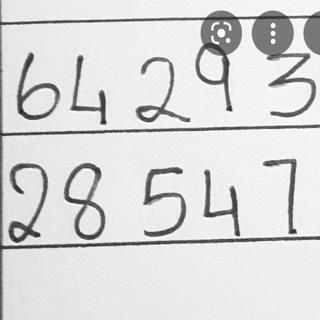 64 29 3
28 54 7